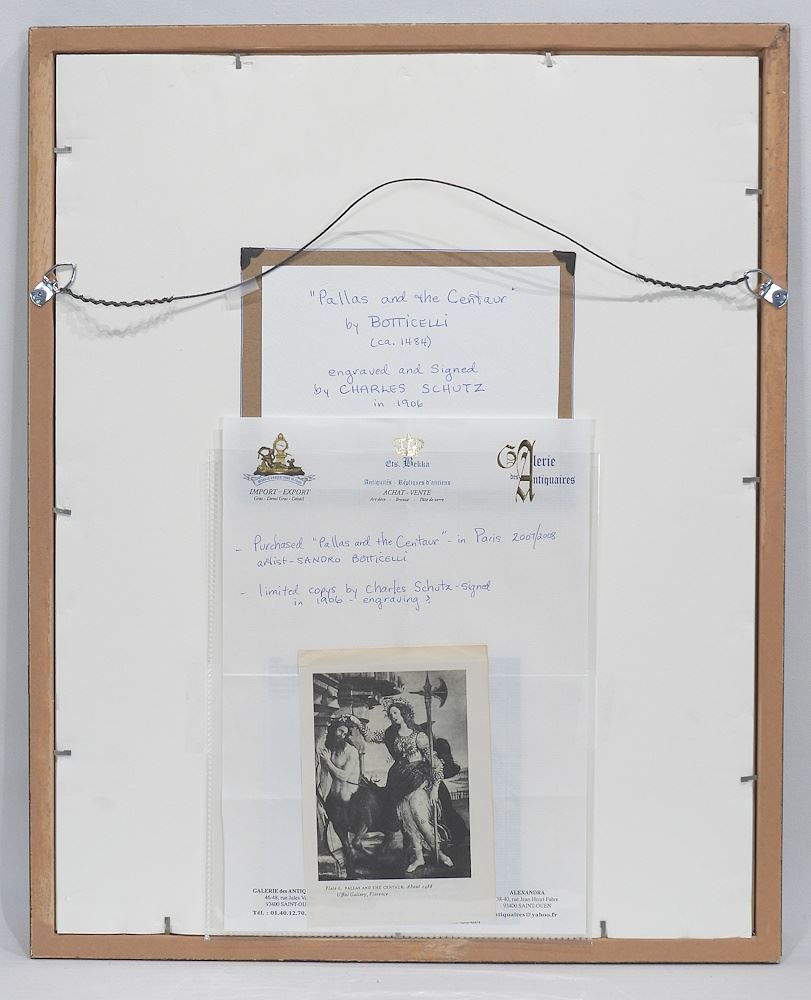 "Pallas and the Centaur"
by BOTTICELLI
(ca. 1484)
engraved and Signed
by CHARLES SCHUTZ
in 1906
IMPORT - EXPORT
Gros - Demi Gros - Détail
Ets. Bekka
Antiquités - Répliques d'anciens
ACHAT - VENTE
Art déco - Bronze - Pâte de verre
Galerie
des Antiquaires
- Purchased "Pallas and the Centaur" - in Paris 2007/2008
artist - SANDRO BOTTICELLI
- limited copys by Charles Schutz - signed
in 1906 - engraving?
Plate 6. PALLAS AND THE CENTAUR. About 1488
Uffizi Gallery, Florence
GALERIE des ANTIQ
46-48, rue Jules V
93400 SAINT-OU
Tél. : 01.40.12.70.
ALEXANDRA
38-40, rue Jean Henri Fabre
93400 SAINT-OUEN
ntiquaires@yahoo.fr